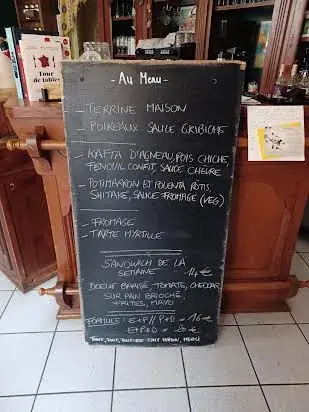 Tour
de tables
- Au Menu -
- TERRINE MAISON
- POIREAUX SAUCE GRIBICHE
- KAFTA D'AGNEAU, POIS CHICHE,
FENOUIL CONFIT, SAUCE CHEVRE
- POTIMARRON ET POLENTA RÔTIS,
SHITAKE, SAUCE FROMAGE (VEG)
- FROMAGE
- TARTE MYRTILLE
SANDWICH DE LA
SEMAINE - 14 €
BOEUF BRAISÉ, TOMATE, CHEDDAR
SUR PAIN BRIOCHÉ,
FRITES, MAYO
FORMULE : E+P // P+D = 16 €
E+P+D = 20 €
TOUT, TOUT, TOUT EST FAIT MAISON, MERCI